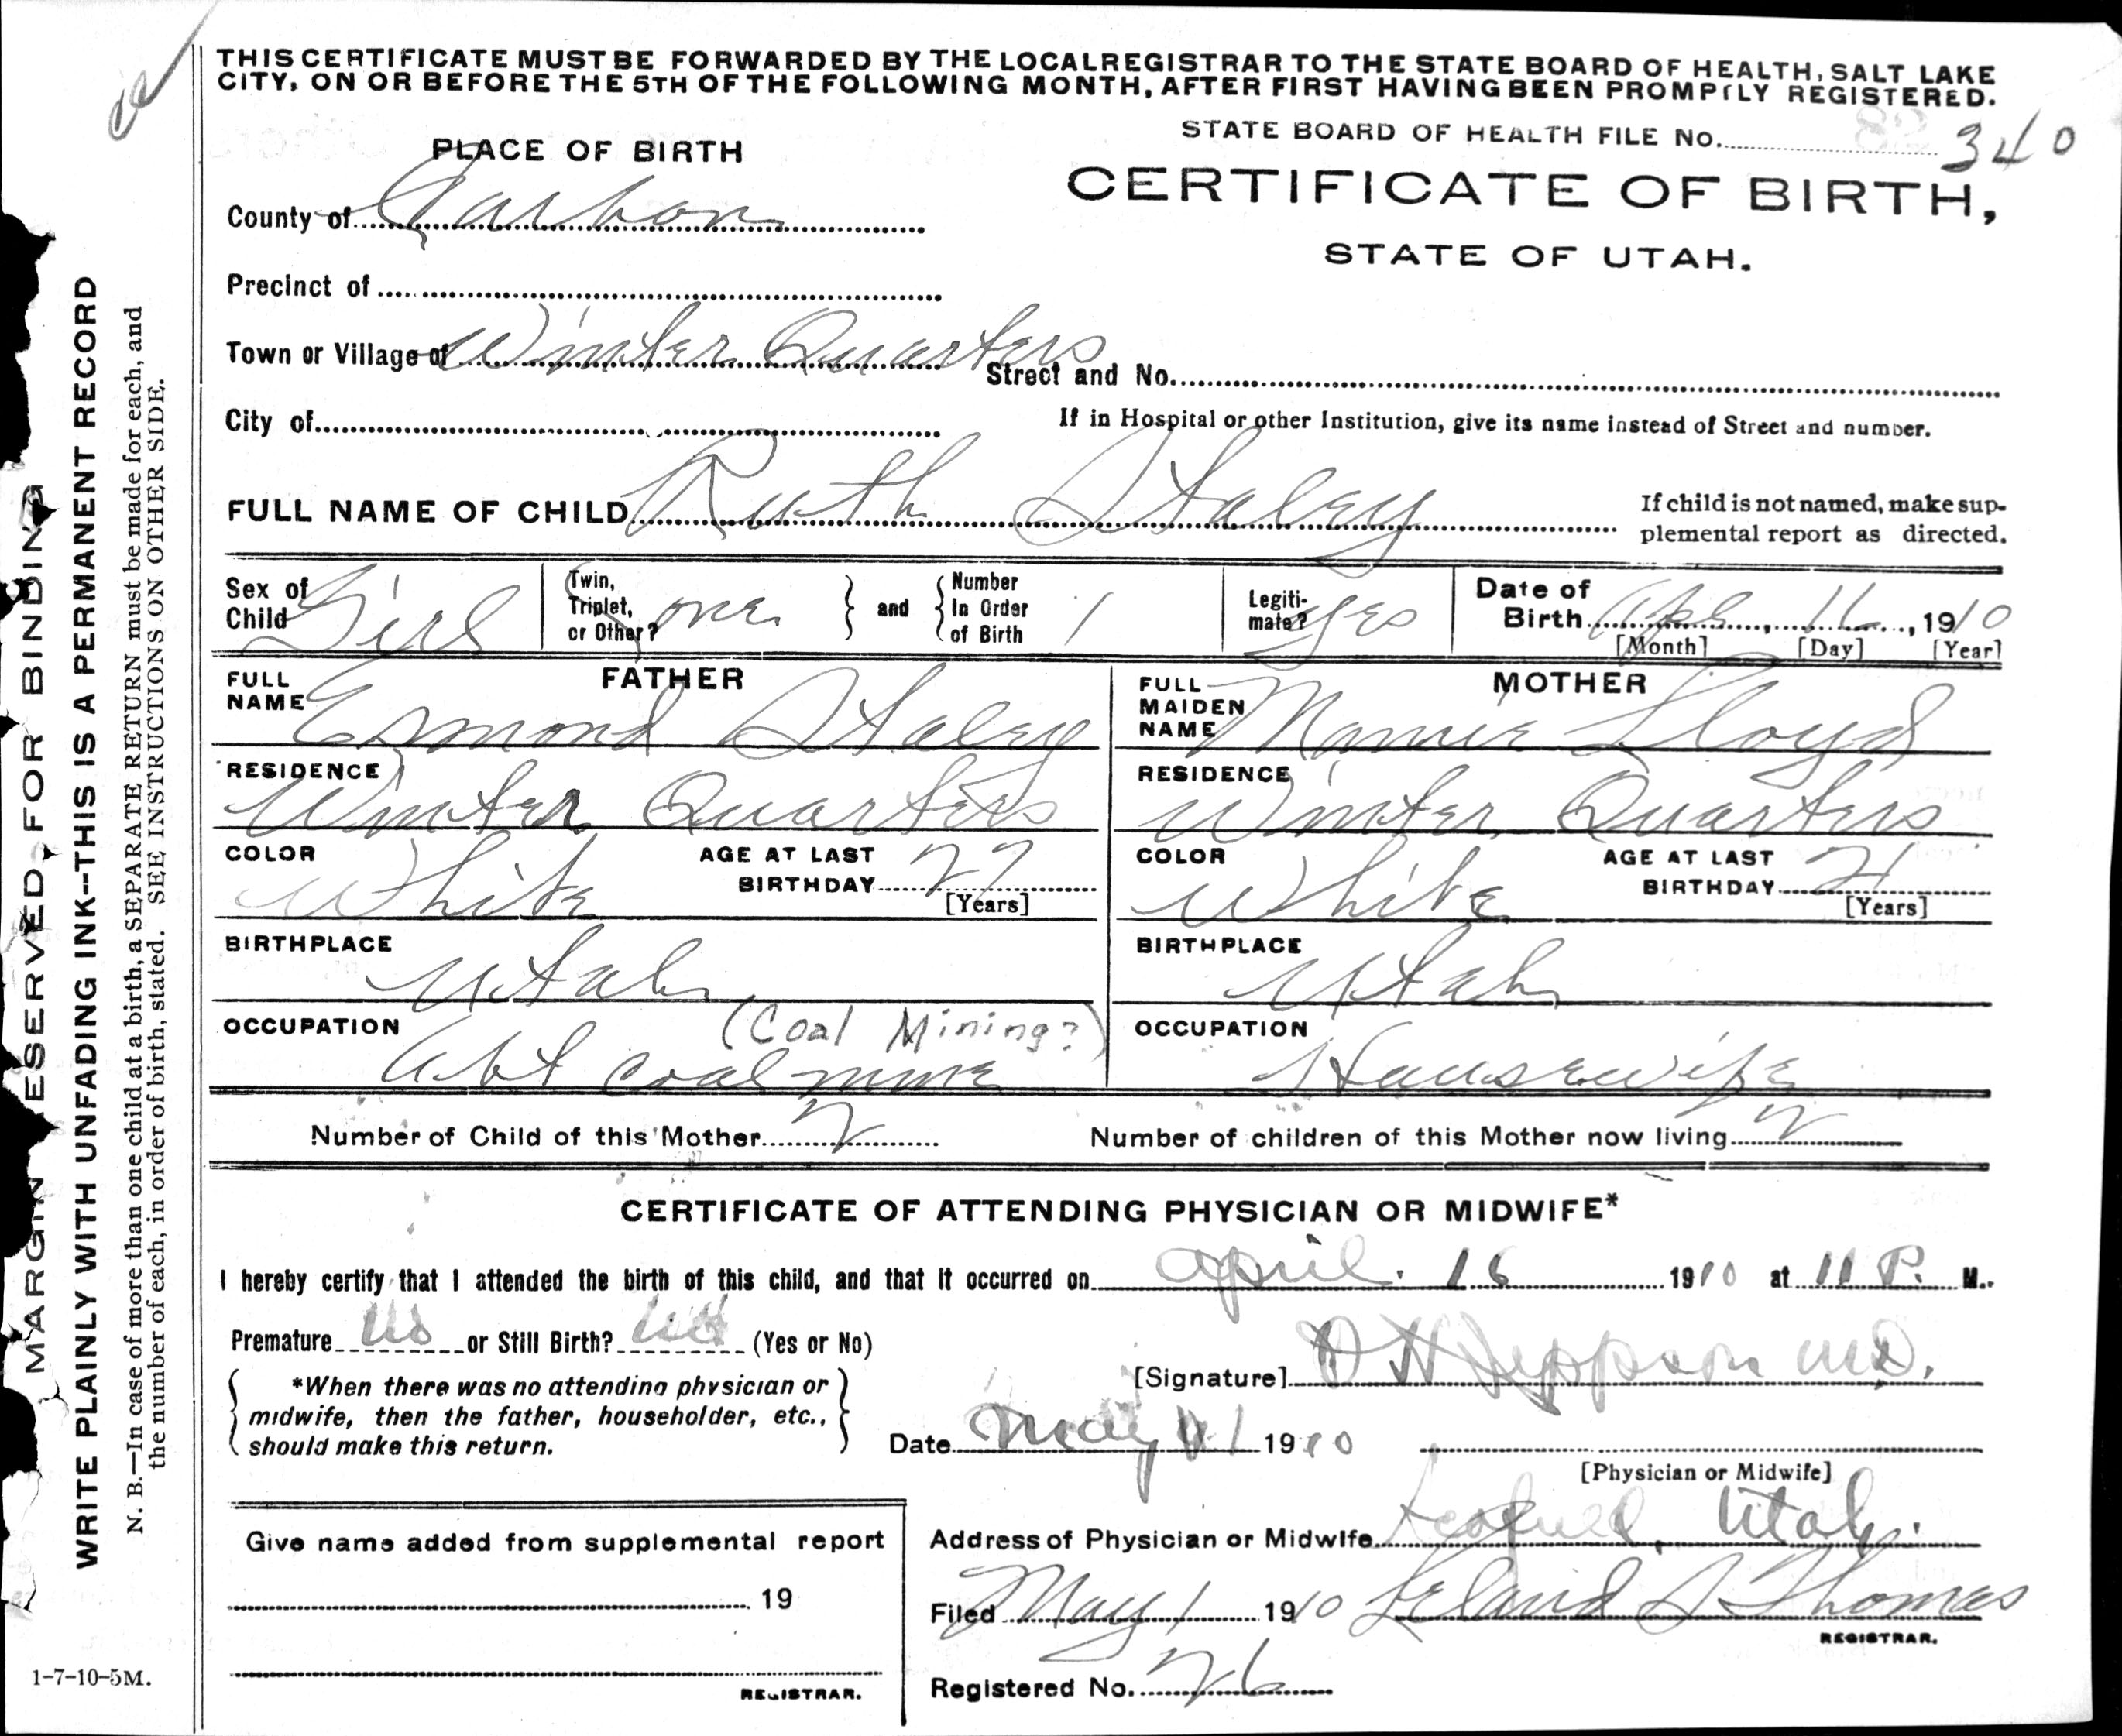 THIS CERTIFICATE MUST BE FORWARDED BY THE LOCAL REGISTRAR TO THE STATE BOARD OF HEALTH, SALT LAKE
CITY, ON OR BEFORE THE 5TH OF THE FOLLOWING MONTH, AFTER FIRST HAVING BEEN PROMPTLY REGISTERED.
STATE BOARD OF HEALTH FILE No. 340
PLACE OF BIRTH
CERTIFICATE OF BIRTH,
STATE OF UTAH.
County of Carbon
Precinct of
Town or Village of Winter Quarters
Street and No.
City of
If in Hospital or other Institution, give its name instead of Street and number.
FULL NAME OF CHILD Ruth Staley
If child is not named, make sup-
plemental report as directed.
Sex of Child Girl
Twin, Triplet, or Other? one
and
Number In Order of Birth 1
Legiti-mate? yes
Date of Birth Apl, 16, 1910
[Month] [Day] [Year]
FATHER
FULL NAME Esmond Staley
RESIDENCE Winter Quarters
COLOR White
AGE AT LAST BIRTHDAY 27
[Years]
BIRTHPLACE Utah
OCCUPATION (Coal Mining?)
Abt coal mine
MOTHER
FULL MAIDEN NAME Mamie Lloyd
RESIDENCE Winter Quarters
COLOR White
AGE AT LAST BIRTHDAY 21
[Years]
BIRTHPLACE Utah
OCCUPATION Housewife
Number of Child of this Mother 2
Number of children of this Mother now living 2
CERTIFICATE OF ATTENDING PHYSICIAN OR MIDWIFE*
I hereby certify that I attended the birth of this child, and that it occurred on April. 16 1910 at 11 P. M.
Premature No or Still Birth? (Yes or No)
*When there was no attending physician or
midwife, then the father, householder, etc.,
should make this return.
[Signature] Jeppson M.D.
Date May 1 1910
[Physician or Midwife]
Address of Physician or Midwife Scofield, Utah.
Give name added from supplemental report
19
REGISTRAR.
Filed May 1 1910 Leland S Thomas
REGISTRAR.
Registered No. 26
MARGIN RESERVED FOR BINDING
WRITE PLAINLY WITH UNFADING INK--THIS IS A PERMANENT RECORD
N. B.—In case of more than one child at a birth, a SEPARATE RETURN must be made for each, and
the number of each, in order of birth, stated. SEE INSTRUCTIONS ON OTHER SIDE.
1-7-10-5M.